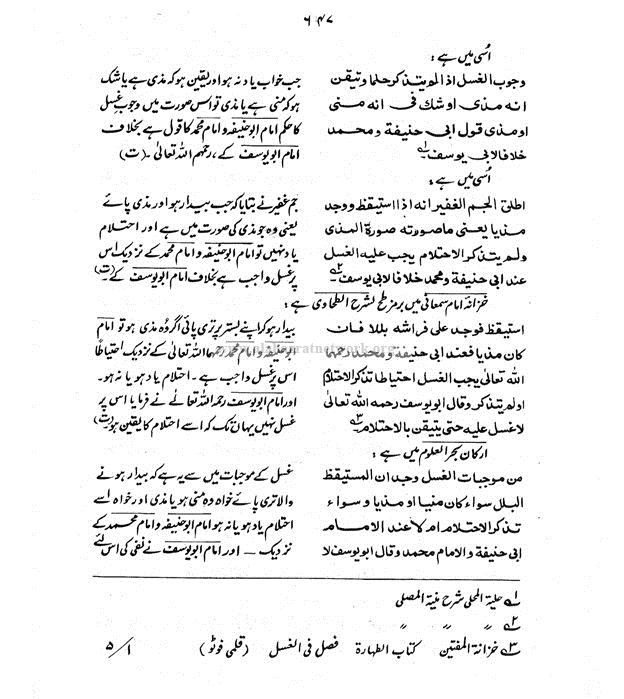 ۶۴۷
اُسی میں ہے :
وجوب الغسل اذا لم یتذکر حلما وتیقن
انه مذی اوشك فی انه منی
او مذی قول ابی حنیفة و محمد
خلافا لابی یوسف۔ ۱؎
جب خواب یاد نہ ہو اور یقین ہو کہ مذی ہے یا شک
ہو کہ منی ہے یا مذی تو اس صورت میں وجوب غسل
کا حکم امام ابو حنیفہ و امام محمد کا قول ہے بخلاف
امام ابو یوسف کے ، رحمہم اللہ تعالٰی ۔ (ت)
اُسی میں ہے :
اطلق الجم الغفیر انه اذا استیقظ ووجد
مذیا یعنی ماصورته صورة المذی
ولم یتذکر الاحتلام یجب علیه الغسل
عند ابی حنیفة ومحمد خلافا لابی یوسف۔ ۲؎
جم غفیر نے بتایا کہ جب بیدار ہو اور مذی پائے
یعنی وہ جو مذی کی صورت میں ہے اور احتلام
یاد نہیں تو امام ابو حنیفہ و امام محمد کے نزدیک اس
پر غسل واجب ہے بخلاف امام ابو یوسف کے ۔ (ت)
خزانہ امام سمعانی میں برمز طح لشرح الطحاوی ہے :
استیقظ فوجد علی فراشه بللا فان
کان مذیا فعند ابی حنیفة و محمد رحمهما
الله تعالٰی یجب الغسل احتیاطا تذکر الاحتلام
اولم یتذکر وقال ابو یوسف رحمه الله تعالٰی
لا غسل علیه حتی یتیقن بالاحتلام۔ ۳؎
بیدار ہو کر اپنے بستر پر تری پائی اگر وُہ مذی ہو تو امام
ابو حنیفہ و امام محمد رحمہما اللہ تعالٰی کے نزدیک احتیاطًا
اس پر غسل واجب ہے ۔ احتلام یاد ہو یا نہ ہو ۔
اور امام ابو یوسف رحمہ اللہ تعالٰے نے فرمایا اس پر
غسل نہیں یہاں تک کہ اسے احتلام کا یقین ہو (ت)
ارکان بحر العلوم میں ہے :
من موجبات الغسل وجدان المستیقظ
البلل سواء کان منیا او مذیا و سواء
تذکر الاحتلام ام لا عند الامام
ابی حنیفة والامام محمد وقال ابو یوسف لا
غسل کے موجبات میں سے یہ ہے کہ بیدار ہونے
والا تری پائے خواہ وہ منی ہو یا مذی اور خواہ اسے
احتلام یاد ہو یا نہ ہو امام ابو حنیفہ و امام محمد کے
نزدیک ــ اور امام ابو یوسف نے نفی کی اس لئے
۱؎ حلیة المحلی شرح منیة المصلی
۲؎ ″ ″ ″
۳؎ خزانة المفتین کتاب الطہارة فصل فی الغسل (قلمی فوٹو) ۱/ ۵